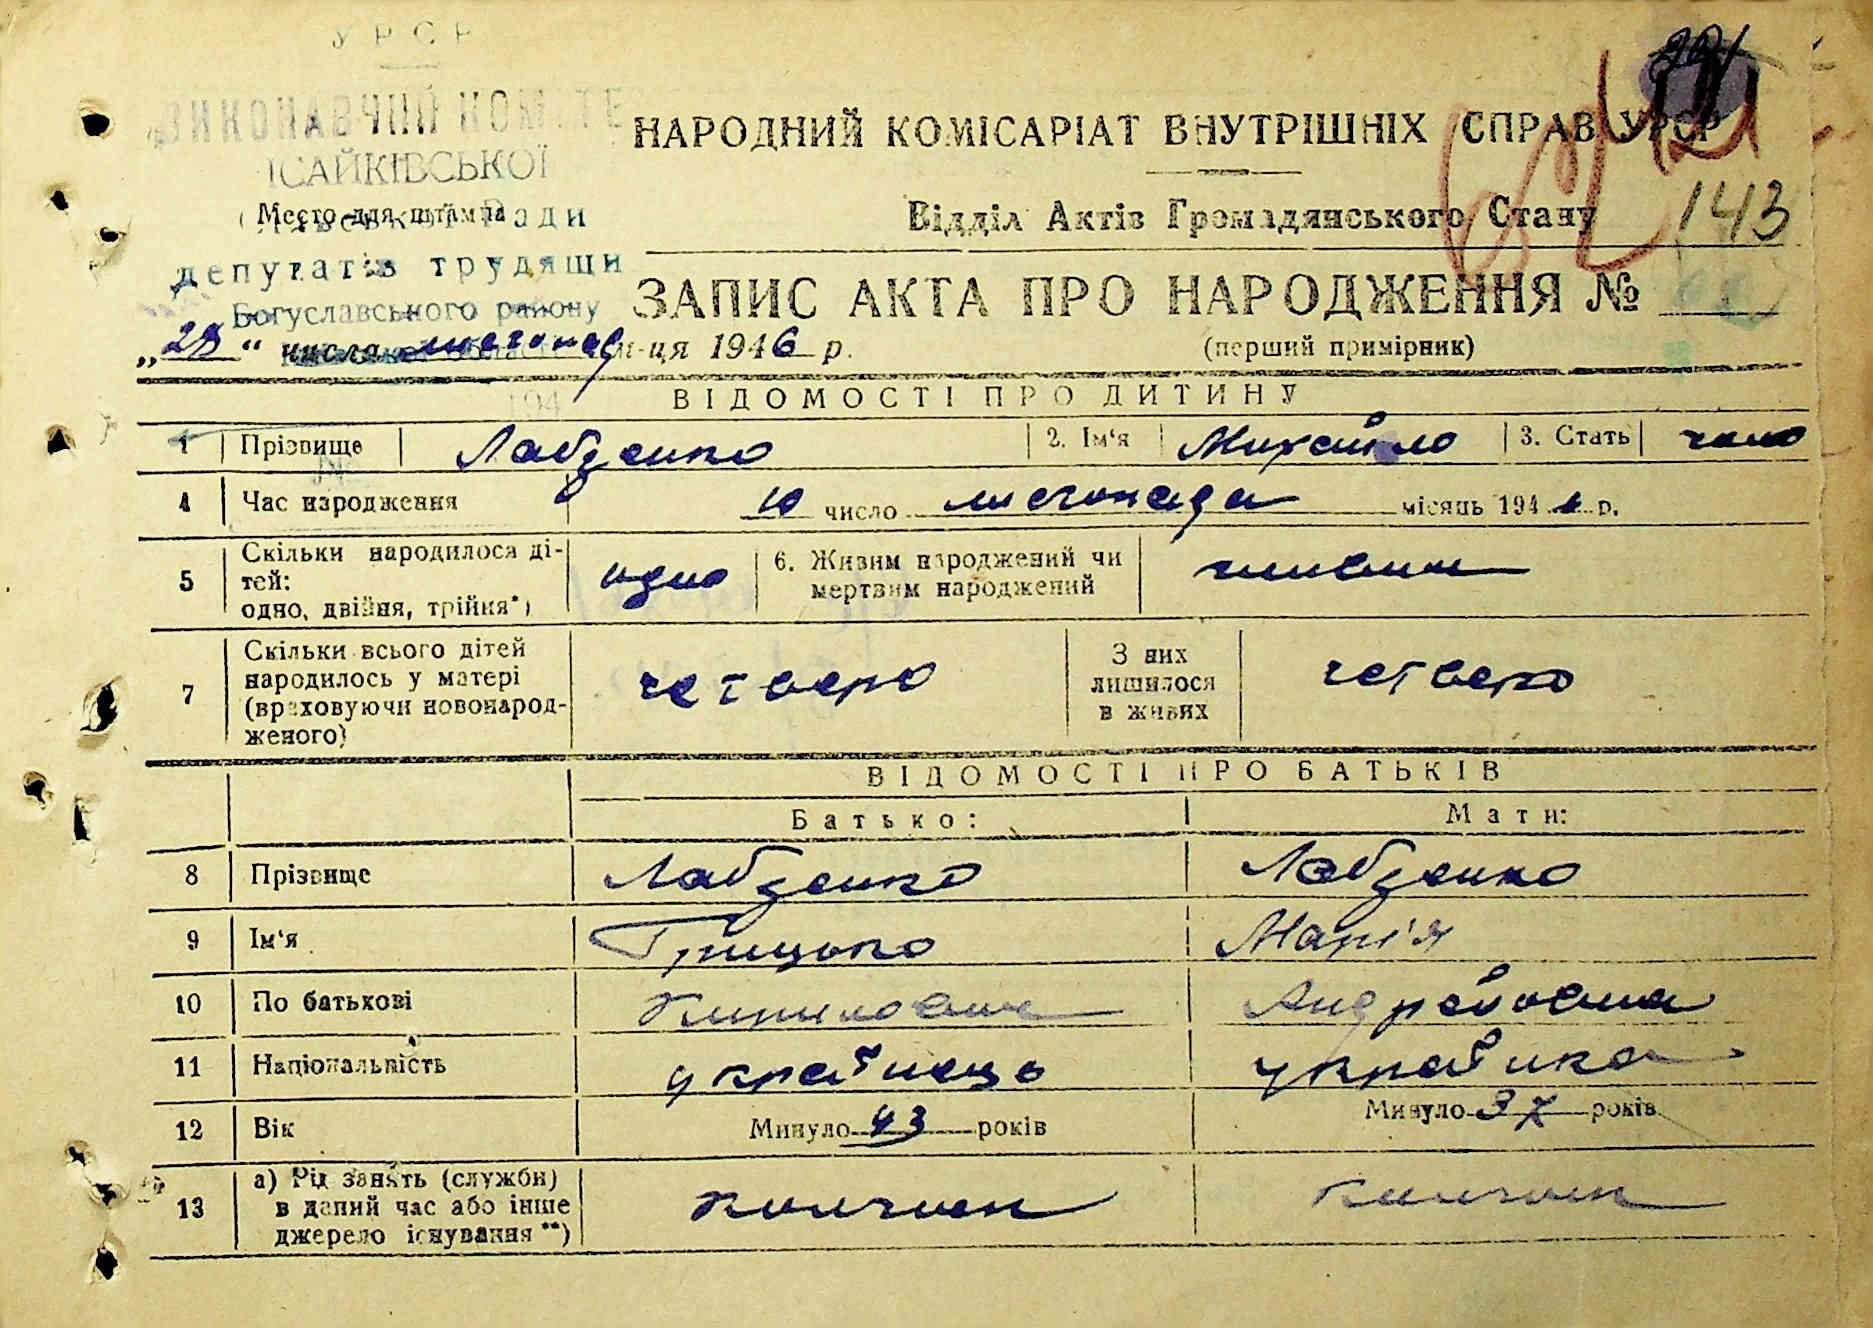 УРСР
ВИКОНАВЧИЙ КОМІТЕ
ІСАЙКІВСЬКОЇ
Место для штампа
Ради
депутатів трудящи
Богуславського району
НАРОДНИЙ КОМІСАРІАТ ВНУТРІШНІХ СПРАВ УРСР
143
Відділ Актів Громадянського Стану
ЗАПИС АКТА ПРО НАРОДЖЕННЯ №
(перший примірник)
„28“ числа листопад м-ця 1946 р.
194
ВІДОМОСТІ ПРО ДИТИНУ
1 Прізвище Лабзенко 2. Ім'я Михайло 3. Стать чоло
4 Час народження 10 число листопада місяць 194 р.
5 Скільки народилося ді-
тей:
одно, двійня, трійня*)
одно
6. Живим народжений чи
мертвим народжений
живим
7 Скільки всього дітей
народилось у матері
(враховуючи новонарод-
женого)
четверо
З них
лишилося
в живих
четверо
ВІДОМОСТІ ПРО БАТЬКІВ
Батько: Мати:
8 Прізвище Лабзенко Лабзенко
9 Ім'я Грицько Марія
10 По батькові Кирилович Андреївна
11 Національність українець українка
12 Вік Минуло 43 років Минуло 37 років
13 а) Рід занять (служби)
в даний час або інше
джерело існування**)
колгосп колгосп